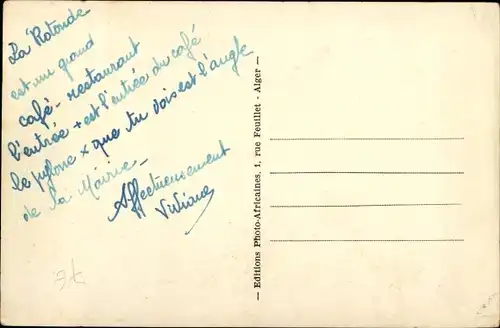 La Rotonde
est un grand
café - restaurant
l'entrée + est l'entrée du café
le x que tu vois est l'angle
de la Mairie -
Affectueusement
Viviane
— Editions Photo-Africaines, 1, rue Feuillet - Alger —